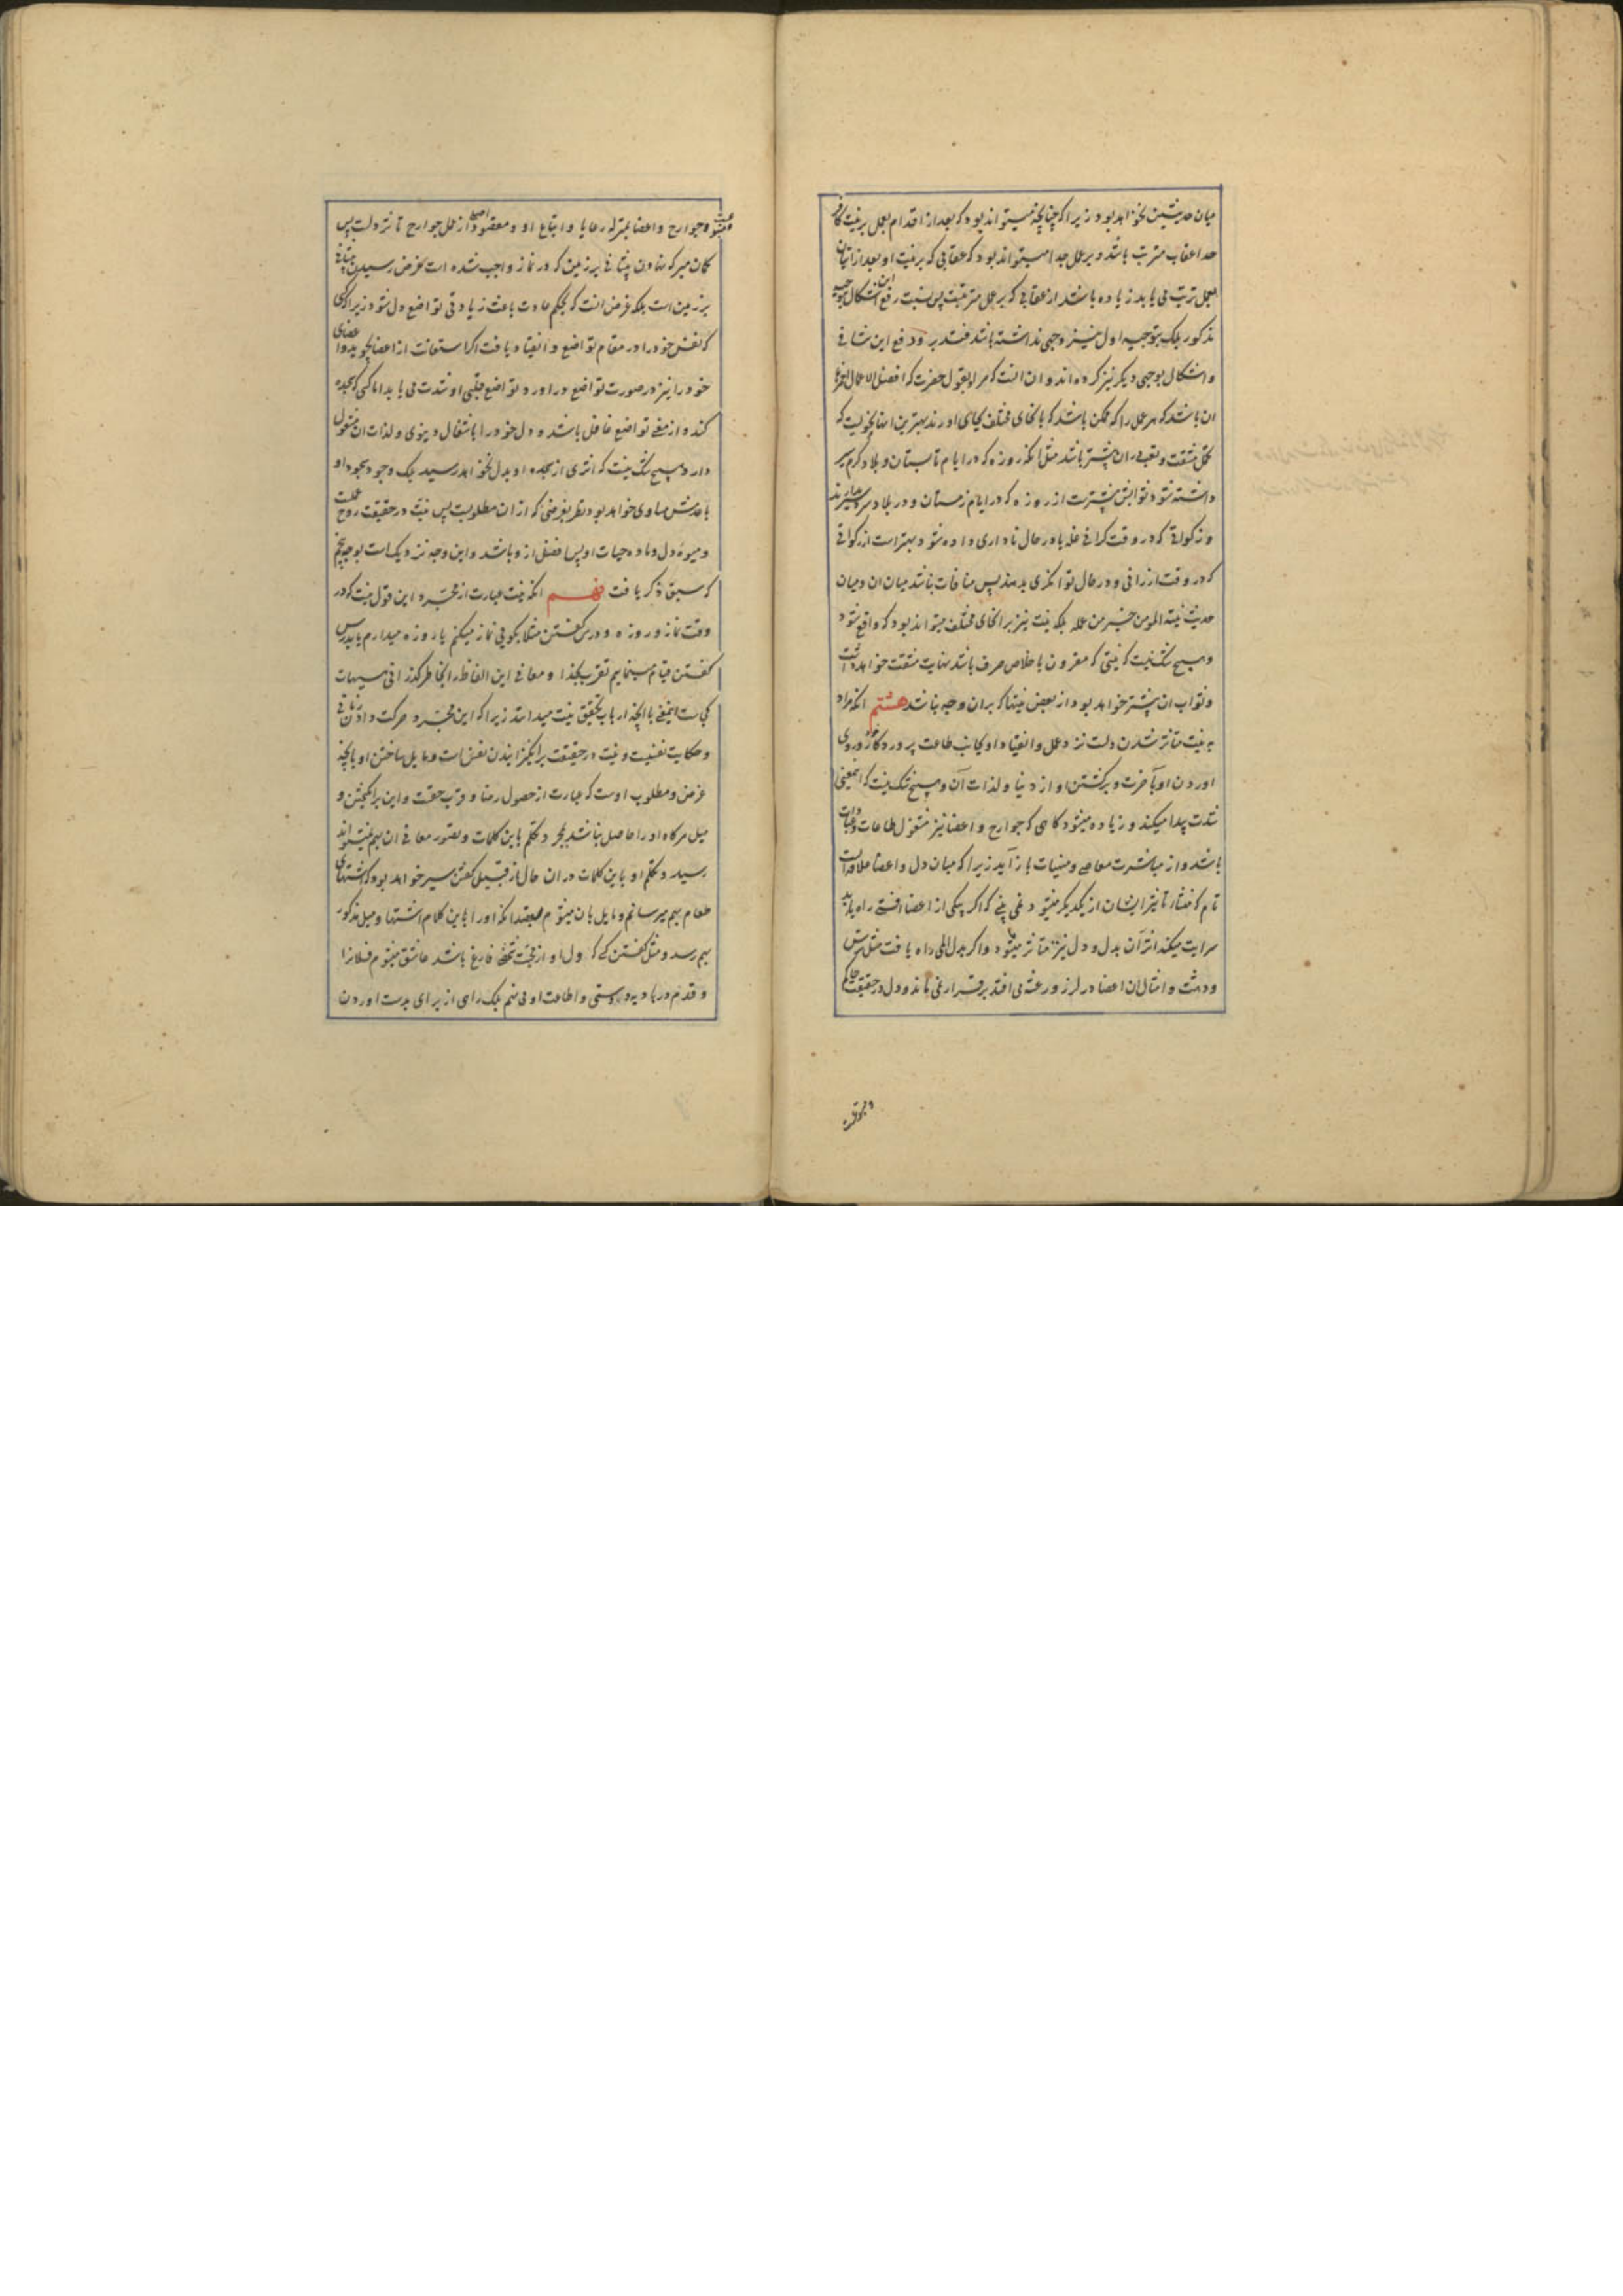 میان حدیثین نخواهد بود زیرا که چنانچه میتواند بود که بعد از اقدام بعمل بر نیت کافر
جدا عقاب مترتب باشد و بر عمل جدا میتواند بود که عقابی که بر نیت او بعد از اتیان
بعمل ترتب می یابد زیاده باشد از عقابی که بر عمل مترتبست پس نسبت رفع این اشکال بتوجیه
مذکور بلکه بتوجیه اول نیز وجهی نداشته باشد فتدبر و دفع این منافی
و اشکال بوجهی دیگر نیز کرده اند و ان انست که مراد بقول حضرت که افضل الاعمال احمزها
ان باشد که هر عمل را که ممکن باشد که بانحای مختلف بجای اورند بهترین انها نحویست که
تحمل مشقت و تعب در ان بیشتر باشد مثل انکه روزه که در ایام تابستان و بلاد گرم سیر
داشته شود ثوابش بیشترست از روزه که در ایام زمستان و در بلاد سردسیر بدارند
و زکواتی که در وقت گرانی غله یا در حال ناداری داده شود بهتر است از زکواتی
که در وقت ارزانی و در حال توانگری بدهند پس منافات نباشد میان ان و میان
حدیث نیة المومن خیر من عمله بلکه نیت نیز بر انحای مختلف میتواند بود که واقع شود
و هیچ شک نیست که نیتی که مقرون باخلاص صرف باشد نهایت مشقت خواهد داشت
و ثواب ان بیشتر خواهد بود از بعض نیتها که بران وجه نباشد هشتم انکه مراد
به نیت متاثر شدن دلست نزد عمل و انقیاد او بجانب طاعت پروردگار و روی
اوردن او بآخرت و برگشتن او از دنیا و لذات آن و هیچ شک نیست که اینمعنی
شدت پیدا میکند و زیاده میشود گاهی که جوارح و اعضا نیز مشغول طاعات و عبادات
باشد و از مباشرت معاصی و منهیات باز آید زیرا که میان دل و اعضا علاقه ایست
تام که منشاء تاثیر ایشان از یکدیگر میشود نمی بینی که اگر بیکی از اعضا افتی راه یابد
سرایت میکند اثر آن بدل و دل نیز متاثر میشود و اگر بدل المی راه یافت مثل ترس
و دهشت و امثال ان اعضا در لرز و رعشه می افتد برقرار نمی ماند و دل در حقیقت حاکم
و متبوع است و جوارح و اعضا بمنزله رعایا و اتباع او و مقصود اصلی از عمل جوارح تاثر دلست پس
گمان مبر که نهادن پیشانی بر زمین که در نماز واجب شده است غرض رسیدن پیشانی
بر زمین است بلکه غرض انست که بحکم عادت باعث زیادتی تواضع دل شود زیرا که کسی
که نفس خود را در مقام تواضع و انقیاد یافت اگر استعانت از اعضا جوید و اعضای
خود را نیز در صورت تواضع دراورد تواضع قلبی او شدت می یابد اما کسی که سجده
کند و از معنی تواضع غافل باشد و دل خود را باشغال دنیوی و لذات ان مشغول
دارد هیچ شک نیست که اثری از سجده او بدل نخواهد رسید بلکه وجود سجود او
با عدمش مساوی خواهد بود نظر بغرضی که از ان مطلوبست پس نیت در حقیقت روح عملست
و میوهٔ دل و ماده حیات او پس افضل ازو باشد و این وجه نزدیک است بوجه پنجم
که سبق ذکر یافت نهم انکه نیت عبارت از مجرد این قول نیست که در
وقت نماز و روزه و درس گفتن مثلا بگویی نماز میکنم یا روزه میدارم یا بدرس
گفتن قیام مینمایم تقرب بخدا و معانی این الفاظ را بخاطر گذرانی هیهات
کجاست اینمعنی با آنچه ارباب تحقیق نیت میدانند زیرا که این مجرد حرکت دادن زبانی
و حکایت نفسیست و نیت در حقیقت برانگیزانیدن نفس است و مایل ساختن او بانچه
غرض و مطلوب اوست که عبارت از حصول رضا و قرب حقست و این برانگیختن و
میل هرگاه او را حاصل نباشد بمجرد تکلم باین کلمات و تصور معانی ان بهم نمیتواند
رسید و تکلم او باین کلمات در ان حال از قبیل گفتن سیر خواهد بود که اشتهای
طعام بهم میرسانم و مایل بان میشوم بقصد انکه او را باین کلام اشتها و میل مذکور
بهم رسد و مثل گفتن کسی که دل او از محبت شخصی فارغ باشد عاشق میشوم فلانرا
و قدم در بادیه دوستی و اطاعت او می نهم بلکه راهی از برای بدست اوردن